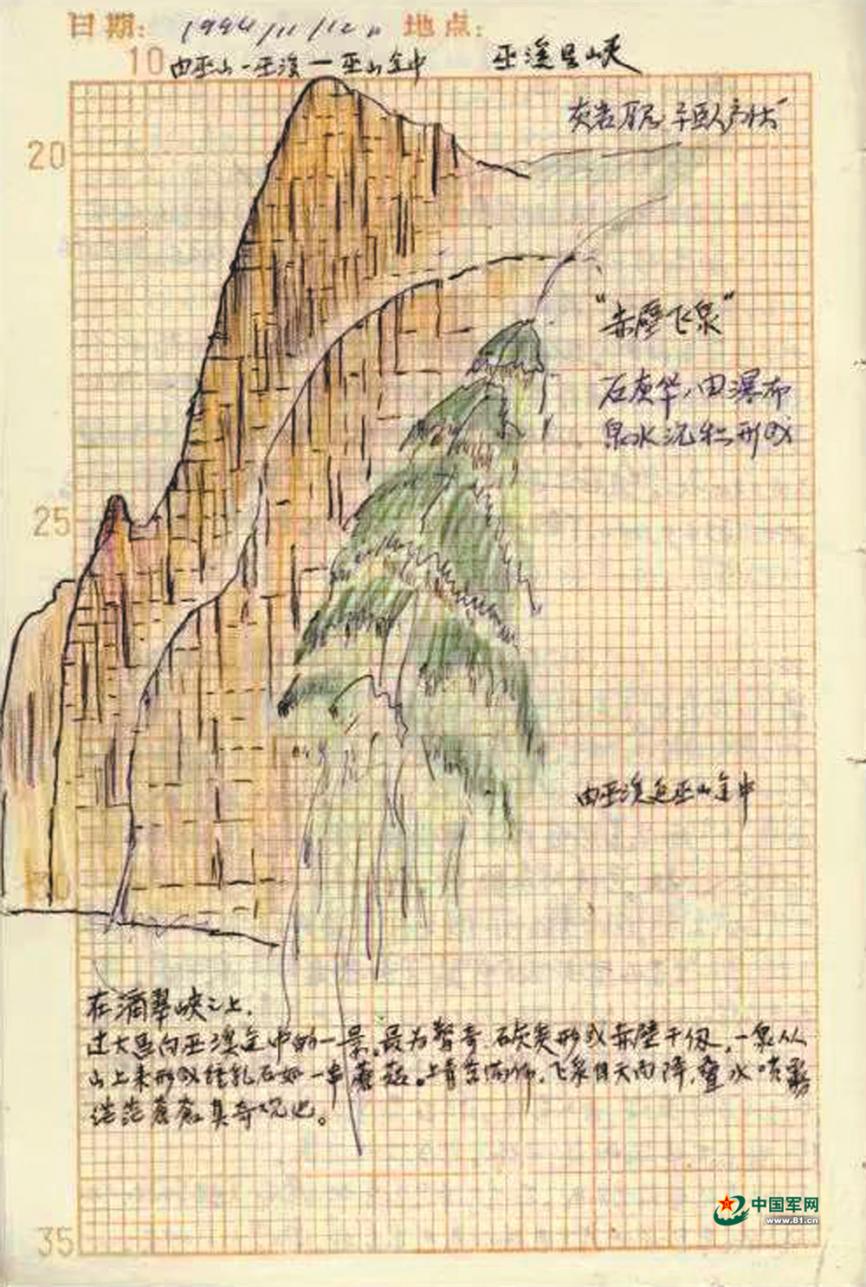 日期: 1994/11/12 地点:
10 由巫山-巫溪-巫山途中 巫溪 峡
灰岩 卧 状
20
"赤壁飞泉"
石灰华,由瀑布
泉水沉积形成
25
由巫溪 巫山途中
30
在滴翠峡之上,
过大 向巫溪途中的一景。最为 奇,碳 形成赤壁千仞,一泉从
山上来形成钟乳石如一串蘑菇。上 苔 ,飞泉自天而降,叠水喷雾
茫茫 其奇观也。
35
中国军网
www.81.cn